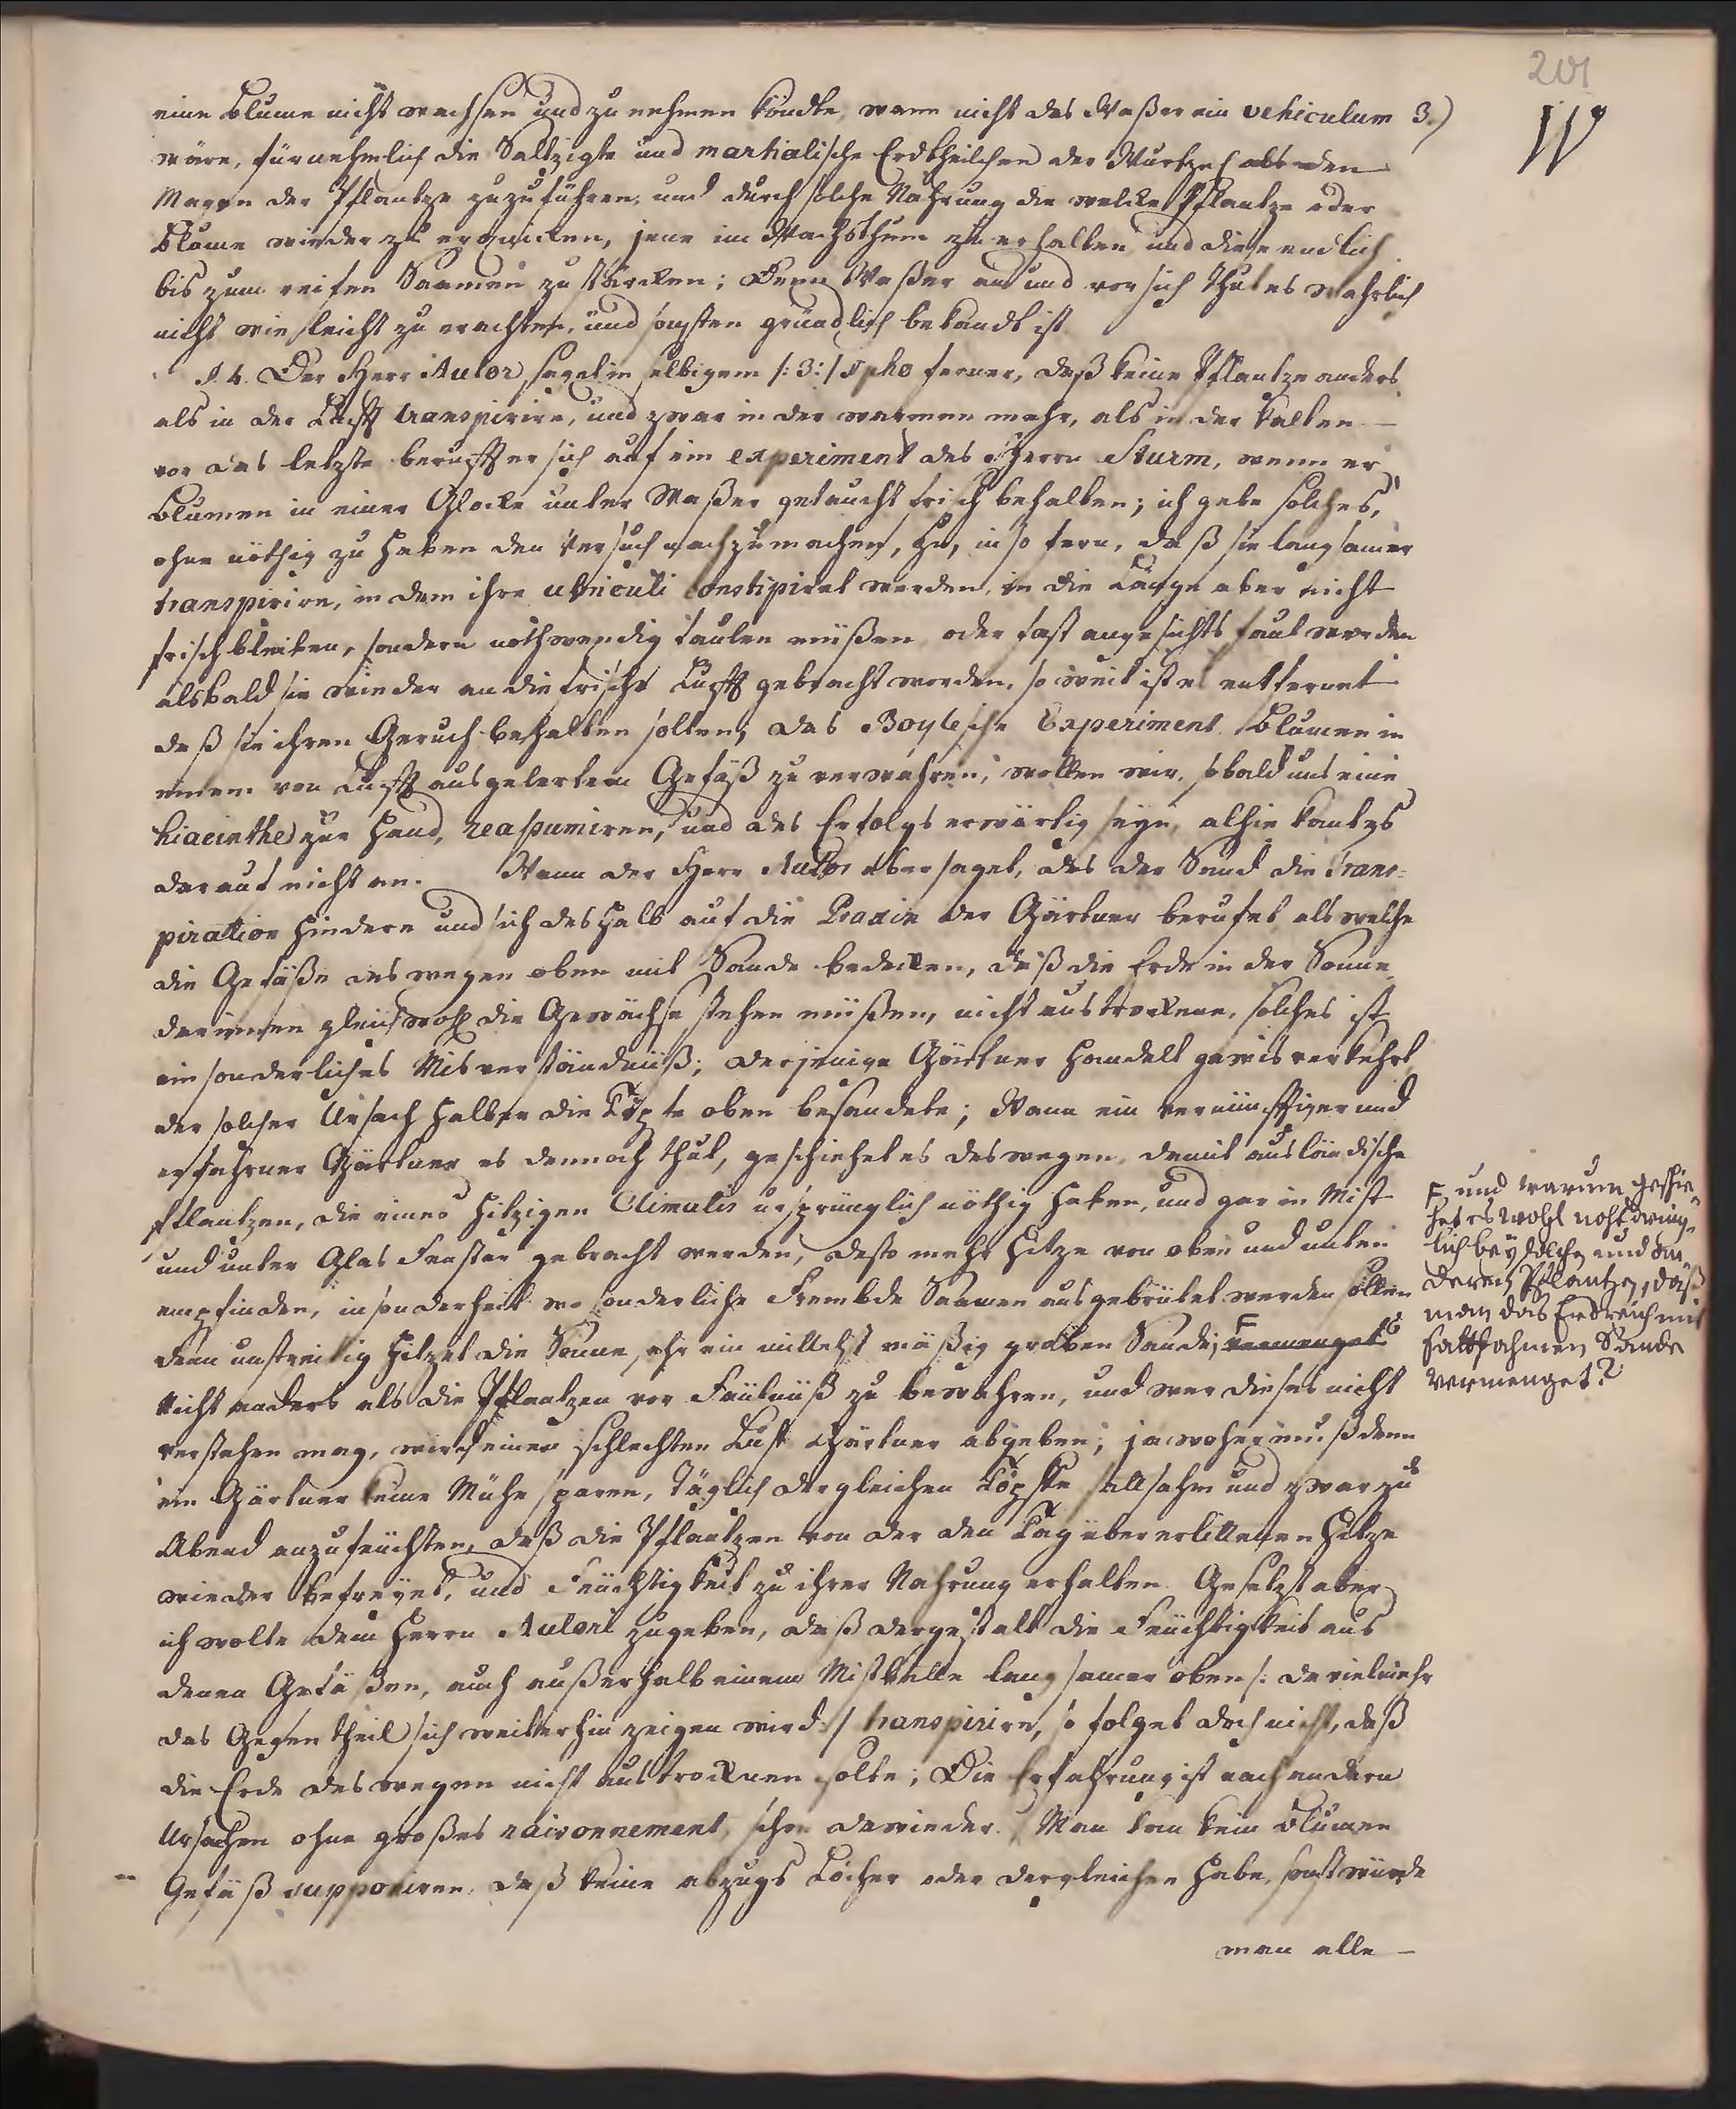 201
3.)
eine Blume nicht wachsen und zu nehmen köndte, wann nicht das Waßer ein vehiculum
wäre, fürnehmlich die Saltzigte und martialische Erdtheilchen der Wurtzel als den
Magen der Pflantze zuzuführen, und durch solche Nahrung die welcke Pflantze oder
Blume wieder zu erquicken, jene im Wachsthum zu erhalten und diese endlich
bis zum reifen Saamen zu stärcken; Denn Waßer an und vor sich thut es wahrlich
nicht wie leicht zu erachten, und sonsten gründlich bekandt ist.
§. 4. Der Herr Autor, saget in selbigem /: 3:/ §pho ferner, daß keine Pflantze anders
als in der Lufft transpirire, und zwar in der warmen mehr, als in der kalten
vor das letzte berufft er sich auf ein experiment des Herrn Sturm, wenn er
Blumen in einer Glocke unter Waßer getaucht frisch behalten; ich gebe solches,
ohne nöthig zu haben den Versuch nachzumachen, zu, in so fern, daß sie langsamer
transpiriren, in dem ihre utriculi constipiret werden, in die Länge aber nicht
frisch bleiben, sondern nothwendig faulen müßen oder fast angesichts faul werden
alsbald sie wieder an die frische Lufft gebracht worden, so weit ist es entfernet
daß sie ihren Geruch behalten solten; das Boylesche Experiment Blumen in
einem von Lufft ausgelertem Gefäß zu verwahren, wollen wir, sobald uns eine
hiacinthe zur Hand, reassumiren, und des Erfolgs erwärtig seyn, alhie komt es
darauf nicht an. Wann der Herr Autor aber saget, das der Sand die trans-
piration hindere und sich deshalb auf die Praxin der Gärtner berufet, als welche
die Gefäße deswegen oben mit Sande bedecken, daß die Erde in der Sonne
darinnen gleichwohl die Gewächse stehen müßen, nicht austrockene, solches ist
ein sonderliches Misverständnüß; derjenige Gärtner handelt gewis verkehrt,
der solcher Ursach halber die Töpfe oben besandete; Wann ein vernünfftiger und
erfahrner Gärtner es dennoch thut, geschiehet es deswegen, damit ausländische
Pflantzen, die eines hitzigen Climatis ursprünglich nöthig haben, und gar in Mist
und unter Glas Fenster gebracht werden, desto mehr Hitze von oben und unten
empfinden, insonderheit wo sonderliche Frembde Saamen ausgebrütet werden sollen
denn unstreitig hitzet die Sonne, ehe ein mittelst mäßig groben Sande; F vermenget
Nicht anders als die Pflantzen vor Fäulnüß zu bewahren, und wer dieses nicht
verstehen mag, wird einen schlechten Lust Gärtner abgeben; ja woher muß denn
ein Gärtner keine Mühe sparen, täglich dergleichen Töpffe sattsahm und zwar zu
Abend anzufeuchten, daß die Pflantzen von der den Tag über erlittenen Hitze
wieder befreyet, und Feuchtigkeit zu ihrer Nahrung erhalten. Gesetzt aber
ich wolte dem Herrn Autori zugeben, daß dergestalt die Feuchtigkeit aus
denen Gefäßen, auch außerhalb einem Mistbette langsamer oben /: da vielmehr
das Gegentheil sich weiterhin zeigen wird :/ transpirire, so folget doch nicht, daß
die Erde deswegen nicht austrocknen solte; Die Erfahrung ist nach andern
Ursachen ohne großes raisonnement, schon dawieder. Man kan kein Blumen
Gefäß supponiren, daß keine abzugs Löcher oder dergleichen habe, sonst würde
man alle
F und warum geschie-
het es wohl nohtwendig-
lich bey solchen und an-
deren Pflantzen, daß
man das Erdreich mit
sattsahmen Sande
vermenget?